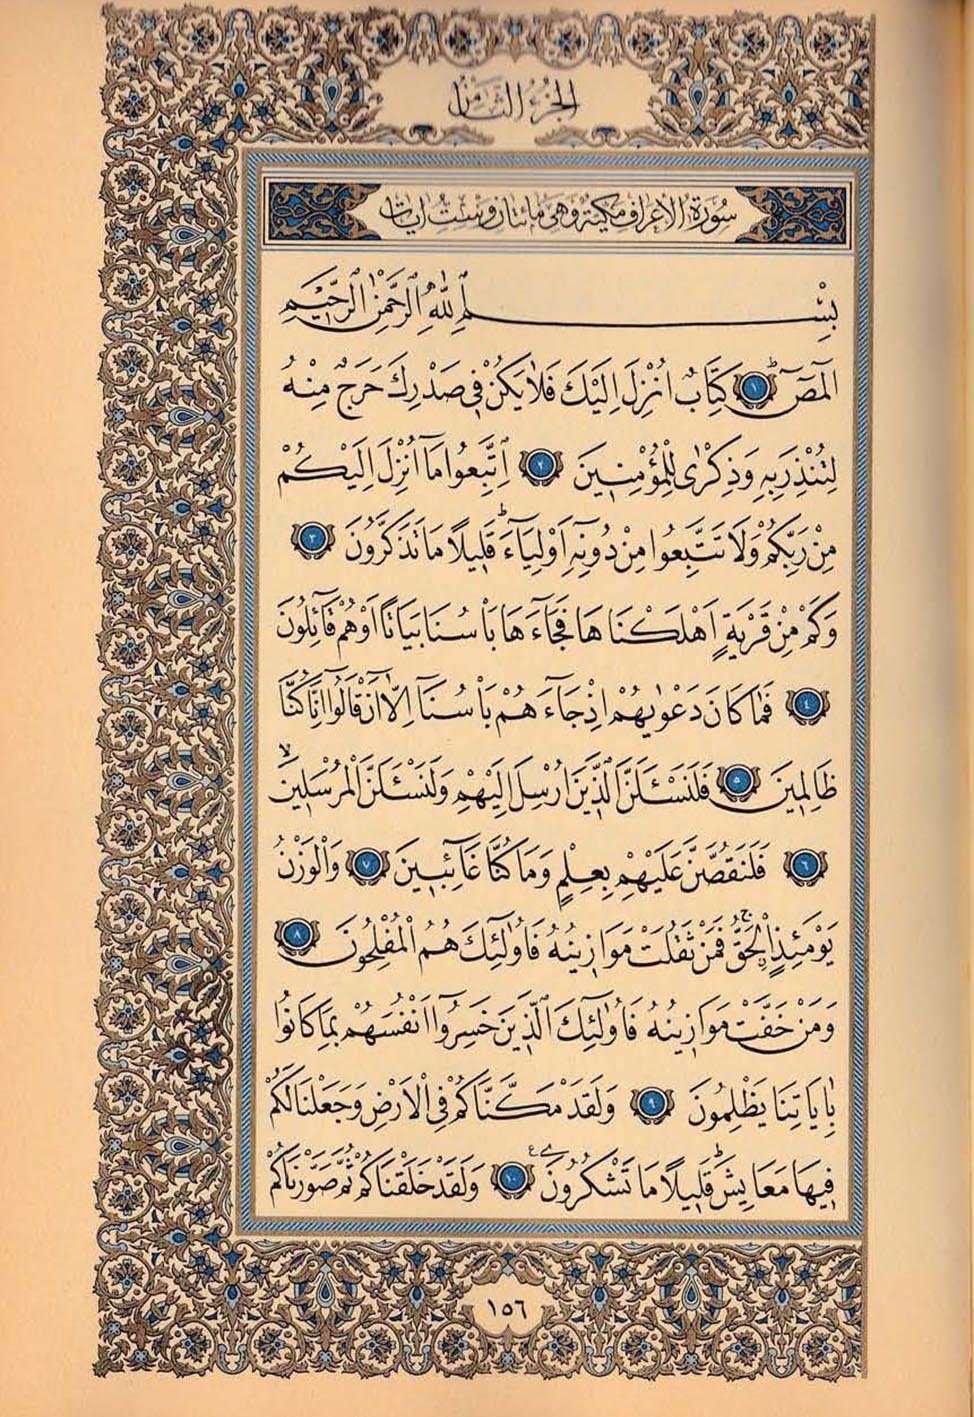 الجزء الثامن
سُورَةُ الْاَعْرَافِ مَكِّيَّةٌ وَهِىَ مِائَتَانِ وَسِتُّ اٰيَاتٍ
بِسْمِ اللّٰهِ الرَّحْمٰنِ الرَّحٖيمِ
الٓمٓصٓ ۚ ﴿١﴾ كِتَابٌ اُنْزِلَ اِلَيْكَ فَلَا يَكُنْ فٖى صَدْرِكَ حَرَجٌ مِنْهُ
لِتُنْذِرَ بِهٖ وَذِكْرٰى لِلْمُؤْمِنٖينَ ﴿٢﴾ اِتَّبِعُوا مَٓا اُنْزِلَ اِلَيْكُمْ
مِنْ رَبِّكُمْ وَلَا تَتَّبِعُوا مِنْ دُونِهٖٓ اَوْلِيَٓاءَؕ قَلٖيلًا مَا تَذَكَّرُونَ ﴿٣﴾
وَكَمْ مِنْ قَرْيَةٍ اَهْلَكْنَاهَا فَجَٓاءَهَا بَاْسُنَا بَيَاتًا اَوْ هُمْ قَٓائِلُونَ
﴿٤﴾ فَمَا كَانَ دَعْوٰيهُمْ اِذْ جَٓاءَهُمْ بَاْسُنَٓا اِلَّٓا اَنْ قَالُٓوا اِنَّا كُنَّا
ظَالِمٖينَ ﴿٥﴾ فَلَنَسْـَٔلَنَّ الَّذٖينَ اُرْسِلَ اِلَيْهِمْ وَلَنَسْـَٔلَنَّ الْمُرْسَلٖينَۙ
﴿٦﴾ فَلَنَقُصَّنَّ عَلَيْهِمْ بِعِلْمٍ وَمَا كُنَّا غَٓائِبٖينَ ﴿٧﴾ وَالْوَزْنُ
يَوْمَئِذٍ الْحَقُّۚ فَمَنْ ثَقُلَتْ مَوَازٖينُهُ فَاُولٰٓئِكَ هُمُ الْمُفْلِحُونَ ﴿٨﴾
وَمَنْ خَفَّتْ مَوَازٖينُهُ فَاُولٰٓئِكَ الَّذٖينَ خَسِرُٓوا اَنْفُسَهُمْ بِمَا كَانُوا
بِاٰيَاتِنَا يَظْلِمُونَ ﴿٩﴾ وَلَقَدْ مَكَّنَّاكُمْ فِى الْاَرْضِ وَجَعَلْنَا لَكُمْ
فٖيهَا مَعَايِشَؕ قَلٖيلًا مَا تَشْكُرُونَ ﴿١٠﴾ وَلَقَدْ خَلَقْنَاكُمْ ثُمَّ صَوَّرْنَاكُمْ
١٥٦